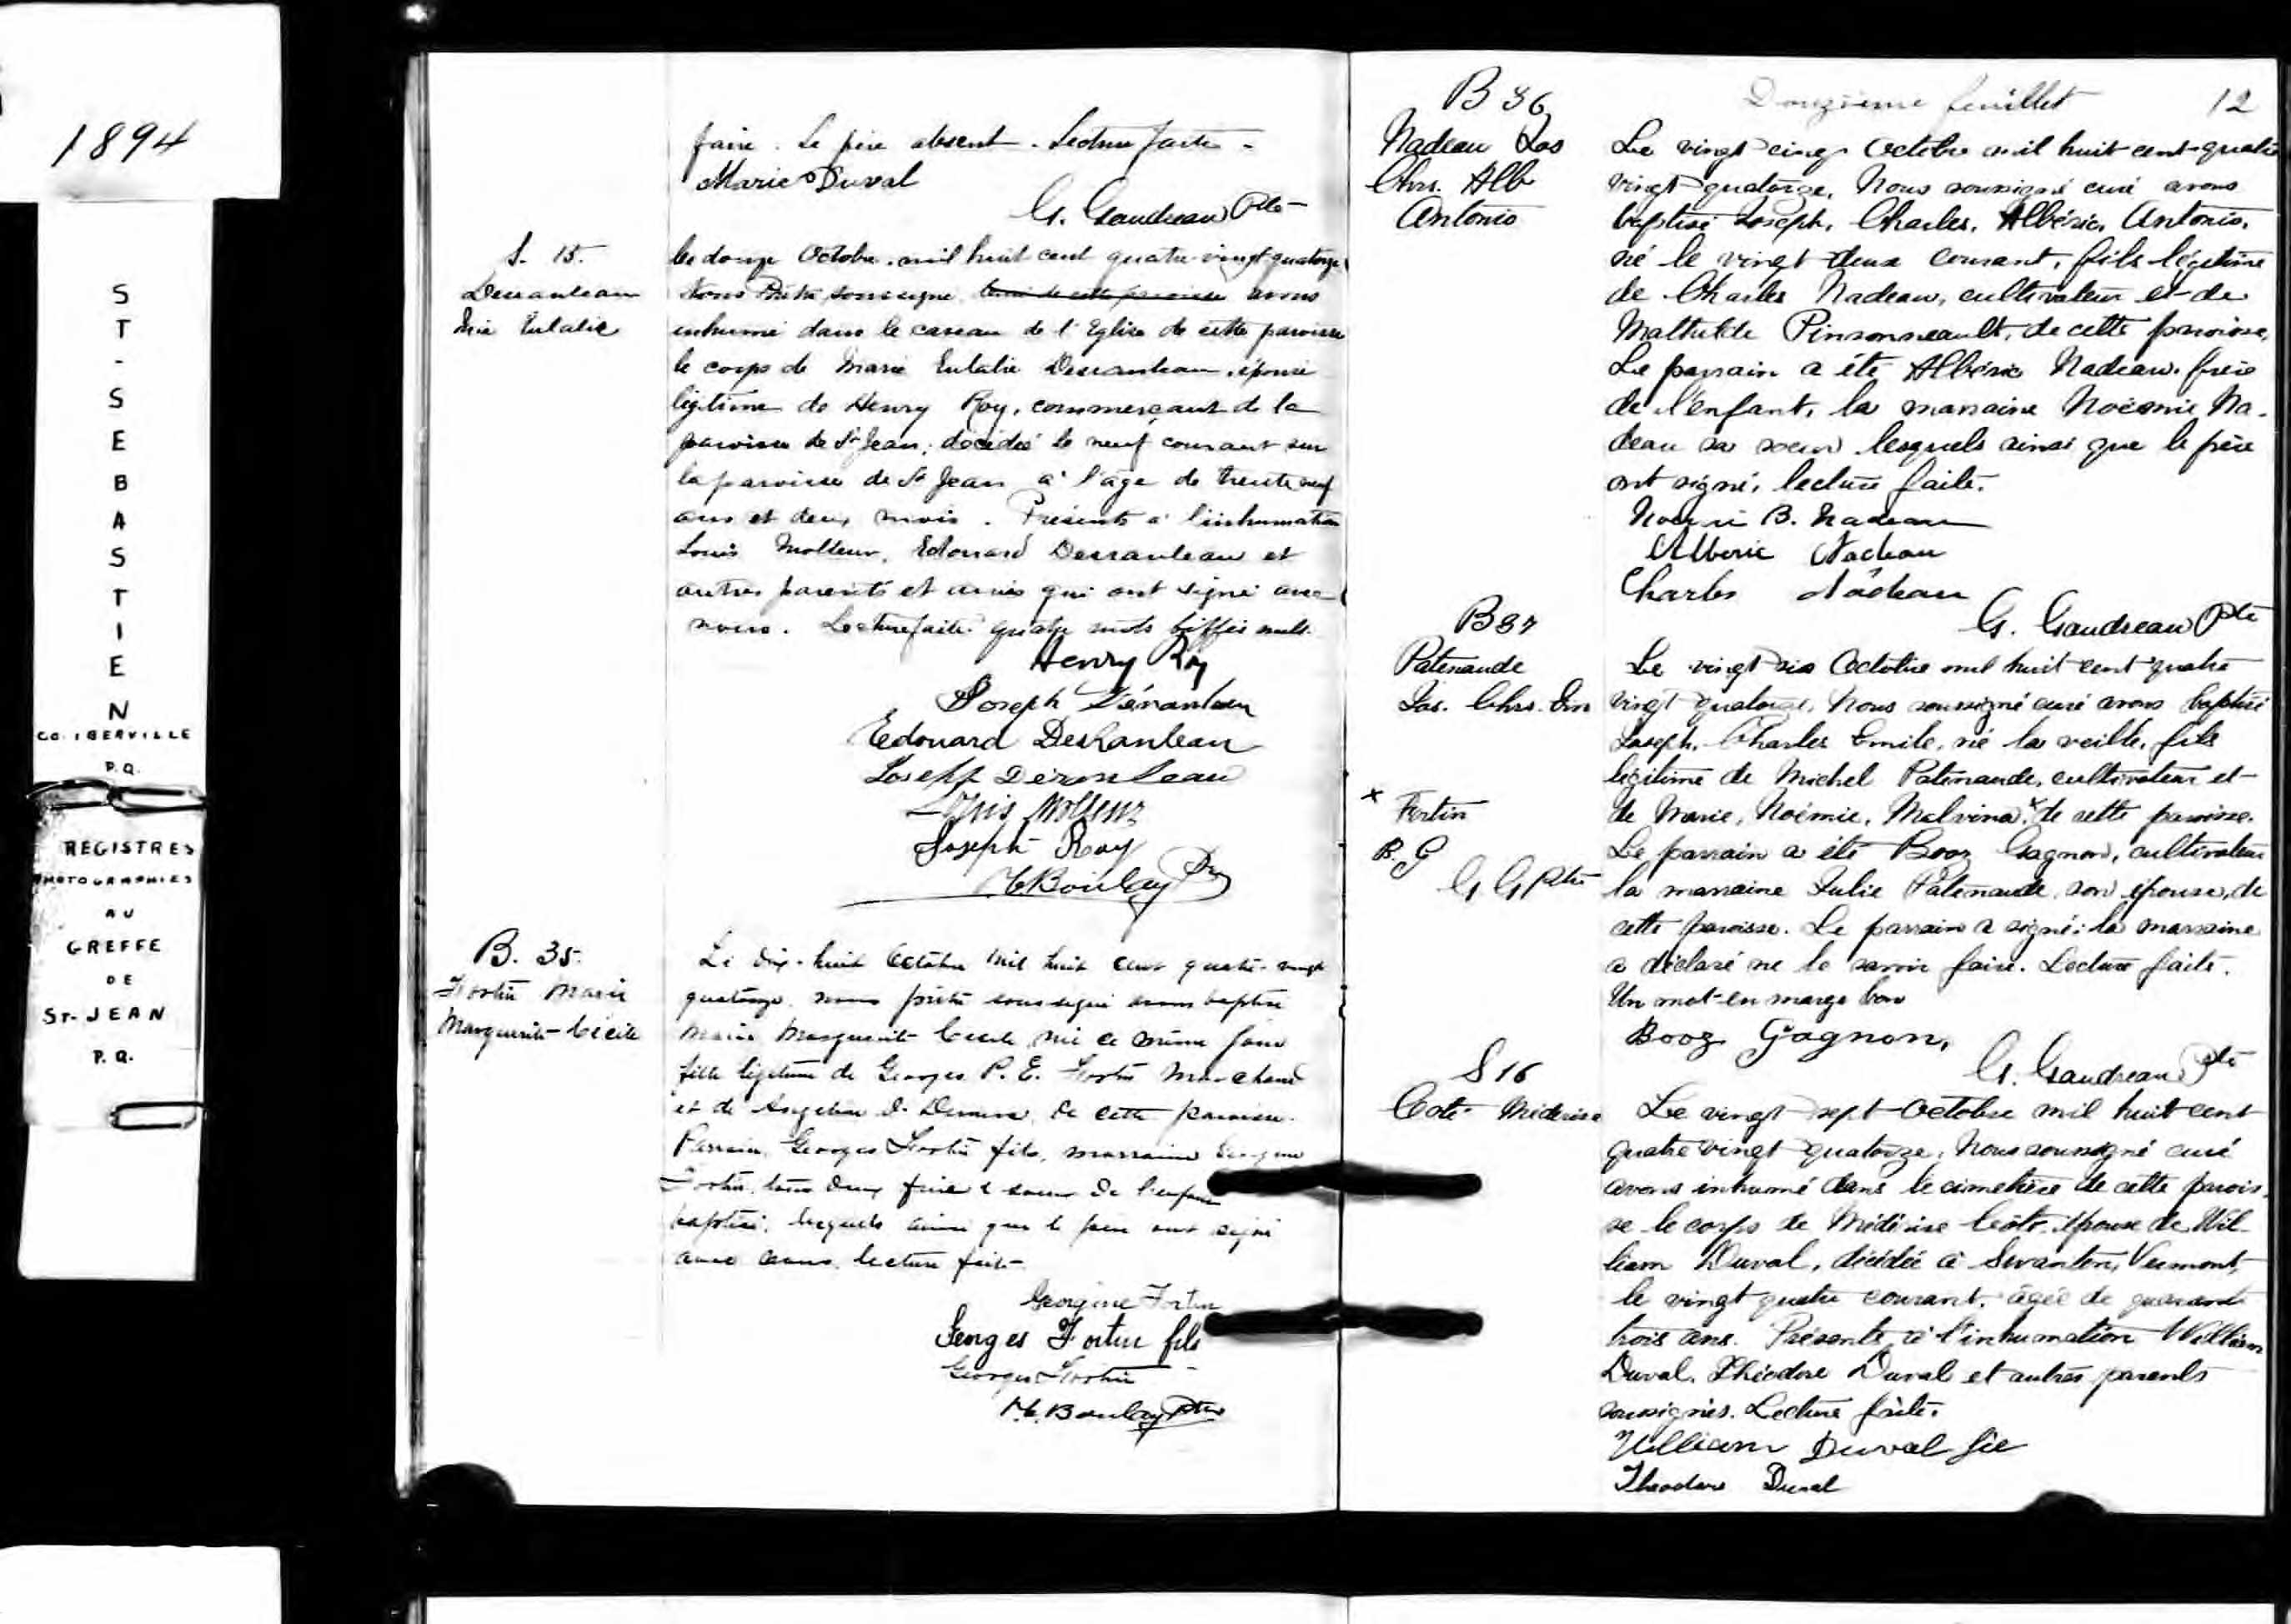 1894
ST-SEBASTIEN
CO. IBERVILLE
P.Q.
REGISTRES
PHOTOGRAPHIES
AU
GREFFE
DE
ST-JEAN
P.Q.
faire. Le père absent. Lecture faite.
Marie Duval
G. Gaudreau Ptre
S. 15.
Desranleau
Mie Eulalie
Le douze Octobre, mil huit cent quatre-vingt-quatorze
Nous Prêtre soussigné curé de cette paroisse avons
inhumé dans le caveau de l'Eglise de cette paroisse
le corps de Marie Eulalie Desranleau, épouse
légitime de Henry Roy, commerçant de la
paroisse de St Jean, décédée le neuf courant sur
la paroisse de St Jean à l'âge de trente neuf
ans et deux mois. Présents à l'inhumation
Louis Molleur, Edouard Desranleau et
autres parents et amis qui ont signé avec
nous. Lecture faite quatre mots biffés nuls.
Henry Roy
Joseph Déranleau
Edouard DesRanleau
Joseph Déranleau
Louis Molleur
Joseph Roy
Boulay Ptre
B. 35.
Fortin Marie
Marguerite Cécile
Le dix-huit Octobre mil huit cent quatre-vingt
quatorze, nous prêtre soussigné avons baptisé
Marie Marguerite Cécile née ce même jour
fille légitime de Georges P. E. Fortin Marchand
et de de cette paroisse.
Parrain, Georges Fortin fils, marraine Georgine
Fortin, tous deux frère & soeur de l'enfant
baptisé, lesquels ainsi que le père ont signé
avec nous, lecture faite
Georgine Fortin
Georges Fortin fils
Georges Fortin
Boulay Ptre
Douzième feuillet 12
B 36
Nadeau Jos
Chrs. Alb
Antonio
Le vingt cinq Octobre mil huit cent quatre
vingt quatorze, Nous soussigné curé avons
baptisé Joseph, Charles, Albéric, Antonio,
né le vingt deux courant, fils légitime
de Charles Nadeau, cultivateur et de
Mathilde Pinsonneault, de cette paroisse.
Le parrain a été Albéric Nadeau frère
de l'enfant, la marraine Noémie Na-
deau sa soeur lesquels ainsi que le père
ont signé, lecture faite.
Noémi B. Nadeau
Alberic Nadeau
Charles Nadeau
G. Gaudreau Ptre
B 37
Patenaude
Jos. Chrs. Em
Le vingt six Octobre mil huit cent quatre
vingt quatorze, Nous soussigné curé avons baptisé
Joseph, Charles Emile, né la veille, fils
légitime de Michel Patenaude, cultivateur et
de Marie, Noémie, Malvina x de cette paroisse.
x Fortin
B. G
G G Ptre
Le parrain a été Booz Gagnon, cultivateur
la marraine Julie Patenaude, son épouse, de
cette paroisse. Le parrain a signé; la marraine
a déclaré ne le savoir faire. Lecture faite.
Un mot en marge bon
Booz Gagnon,
G. Gaudreau Ptre
S 16
Coté Méderise
Le vingt sept Octobre mil huit cent
quatre vingt quatorze, Nous soussigné curé
avons inhumé dans le cimetière de cette parois-
se le corps de Méderise Coté, épouse de Wil-
liam Duval, décédée à Swanton, Vermont,
le vingt quatre courant, âgée de quarante
trois ans. Présents à l'inhumation William
Duval, Théodore Duval et autres parents
soussignés. Lecture faite.
William Duval
Theodore Duval